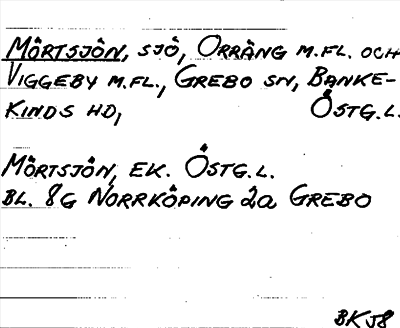 MÖRTSJÖN, SJÖ, ORRÄNG M.FL. OCH
VIGGEBY M.FL., GREBO SN, BANKE-
KINDS HD, ÖSTG.L.
MÖRTSJÖN, EK. ÖSTG.L.
BL. 8G NORRKÖPING 2a GREBO
BKJ8